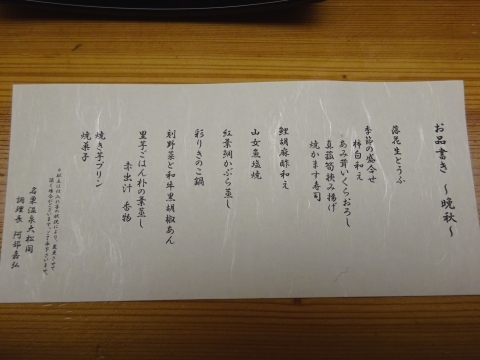 お品書き ～晩秋～
落花生とうふ
季節の盛合せ
柿白和え
あみ茸いくらおろし
真菰筍挟み揚げ
焼かます寿司
鯉胡麻酢和え
山女魚塩焼
紅葉鯛かぶら蒸し
彩りきのこ鍋
刻野菜と和牛黒胡椒あん
里芋ごはん朴の葉蒸し
赤出汁 香物
焼き芋プリン
焼菓子
名栗温泉大松閣
調理長 阿部嘉弘